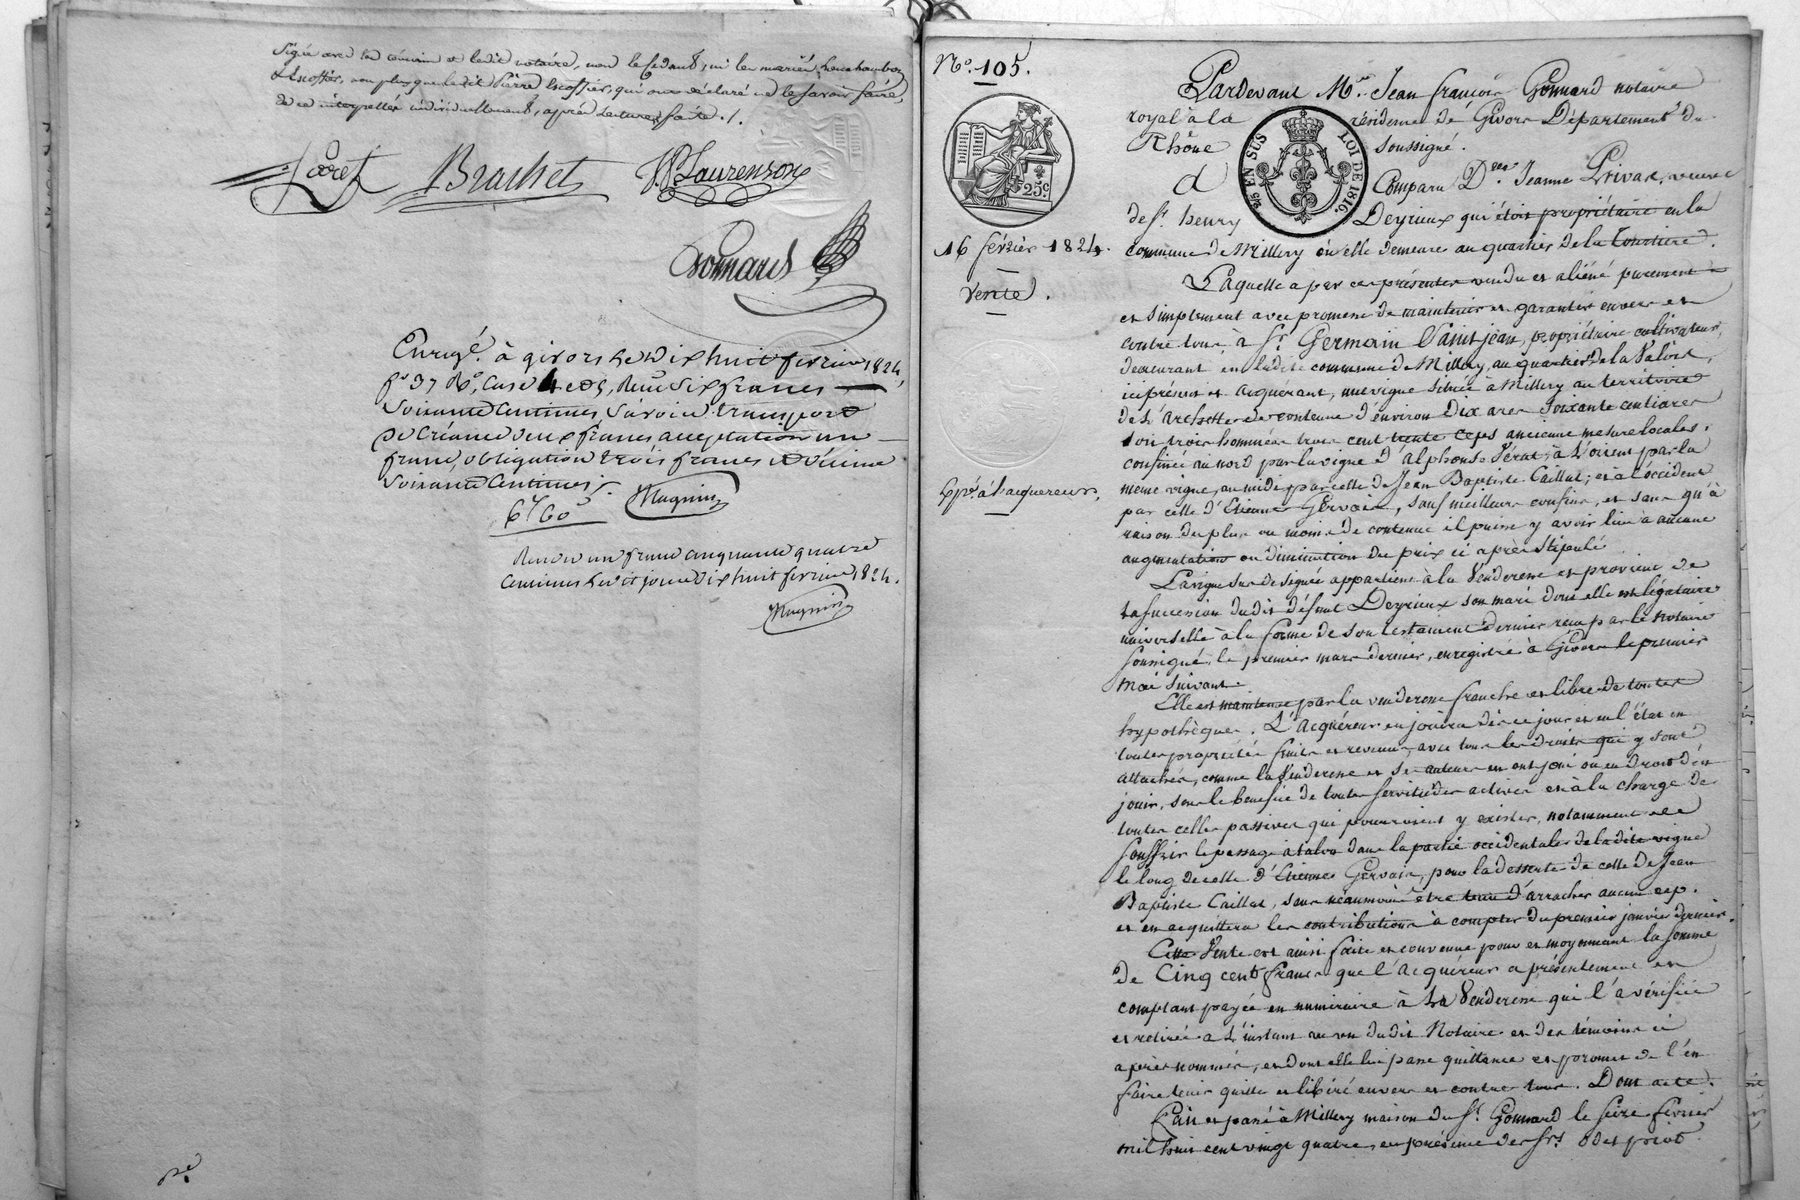 signé avec les témoins et ledit notaire, non le cédant, ni les mariés
Escoffier, non plus que ledit Pierre Escoffier, qui ont déclaré ne le savoir faire,
de ce interpellés individuellement, après lecture faite ./.
Brachet
Laurenson
Gonnard
Enregé. à givors le dix huit fevrier 1824,
fo 37 Ro, Case 4 et 5, Reçu six francs
soixante Centimes, savoir transport
de Créance deux francs acceptation un
franc, obligation trois francs et décime
soixante Centimes.
6f 60c
Magnin
Reçu un franc cinquante quatre
Centimes ledit jour dix huit fevrier 1824.
Magnin
No. 105.
25c.
16 février 1824.
Vente.
Expon. à l'acquereur.
Pardevant Me. Jean françois Gonnard notaire
royal à la résidence de Givors Département du
Rhône soussigné.
EN SUS LOI DE 1816.
A Comparu De. Jeanne Privas, veuve
de Sr. henry Deyrieux qui étoit propriétaire en la
commune de Millery où elle demeure au quartier de la
Laquelle a par ces présentes vendu et aliéné purement
et simplement avec promesse de maintenir et garantir envers et
contre tous à Sr. Germain Saint jean, propriétaire cultivateur,
demeurant en ladite commune de Millery, au quartier de la
ici présent et acquérant, une vigne située à Millery au territoire
de contenue d'environ dix ares soixante centiares
soit trois hommées trois cent trente ceps ancienne mesure locale,
confinée au nord par la vigne d'alphonse à l'orient par la
même vigne, au midi par celle de Jean Baptiste Caillat; et à l'occident
par celle d'Etienne Gervais, sauf meilleurs confins, et sans qu'à
raison du plus ou moins de contenue il puisse y avoir lieu à aucune
augmentation ou diminution du prix ci après stipulé
La vigne sus désignée appartient à la Venderesse et provient de
la succession dudit défunt Deyrieux son mari dont elle est légataire
universelle à la forme de son testament dernier reçu par le notaire
soussigné, le premier mars dernier, enregistré à Givors le premier
mai suivant
Elle est maintenue par la venderesse franche et libre de toutes
hypothèques. L'Acquéreur en jouira dès ce jour et en l'état en
toute propriété fruits et revenus, avec tous les droits qui y sont
attachés, comme la Venderesse et ses auteurs en ont joui ou eu droit d'en
jouir, sous le bénéfice de toutes servitudes actives et à la charge de
toutes celles passives qui pourroient y exister, notamment de
souffrir le passage à talon dans la partie occidentale de ladite vigne
le long de celle d'Etienne Gervais, pour la desserte de celle de Jean
Baptiste Caillat, sans néanmoins être tenu d'arracher aucun cep.
et en acquittera les contributions à compter du premier janvier dernier.
Cette Vente est ainsi faite et convenue pour et moyennant la somme
de Cinq cents francs que l'Acquéreur a présentement et
comptant payée en numéraire à La Venderesse qui l'a vérifiée
et retirée à l'instant au vu dudit Notaire et des témoins ci
après nommés, et dont elle lui passe quittance et promet de l'en
faire tenir quitte et libéré envers et contre tous. Dont acte.
Fait et passé à Millery maison du Sr. Gonnard le seize février
mil huit cent vingt quatre, en présence des Srs.